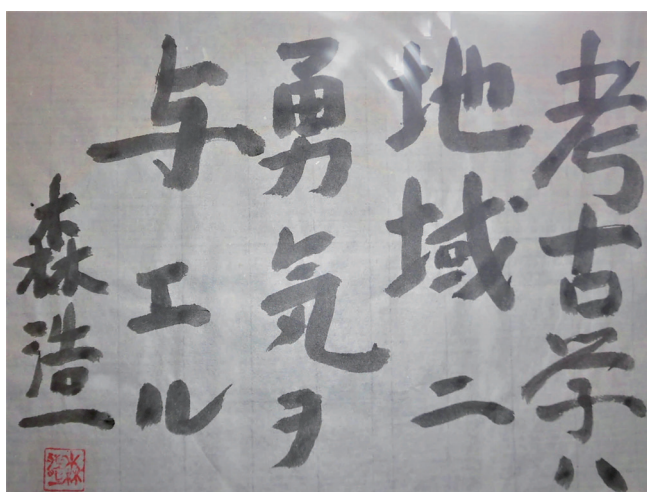 考古学ハ
地域ニ
勇気ヲ
与エル
森浩一